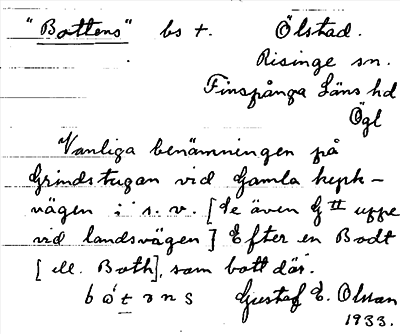 "Bottens" bs t. Ölstad.
Risinge sn.
Finspånga Läns hd
Ögl
Vanliga benämningen på
Grindstugan vid Gamla kyrk-
vägen i s. v. [Se även G II uppe
vid landsvägen] Efter en Bodt
[ell. Both], som bott där.
Gustaf E. Olsson
1933.